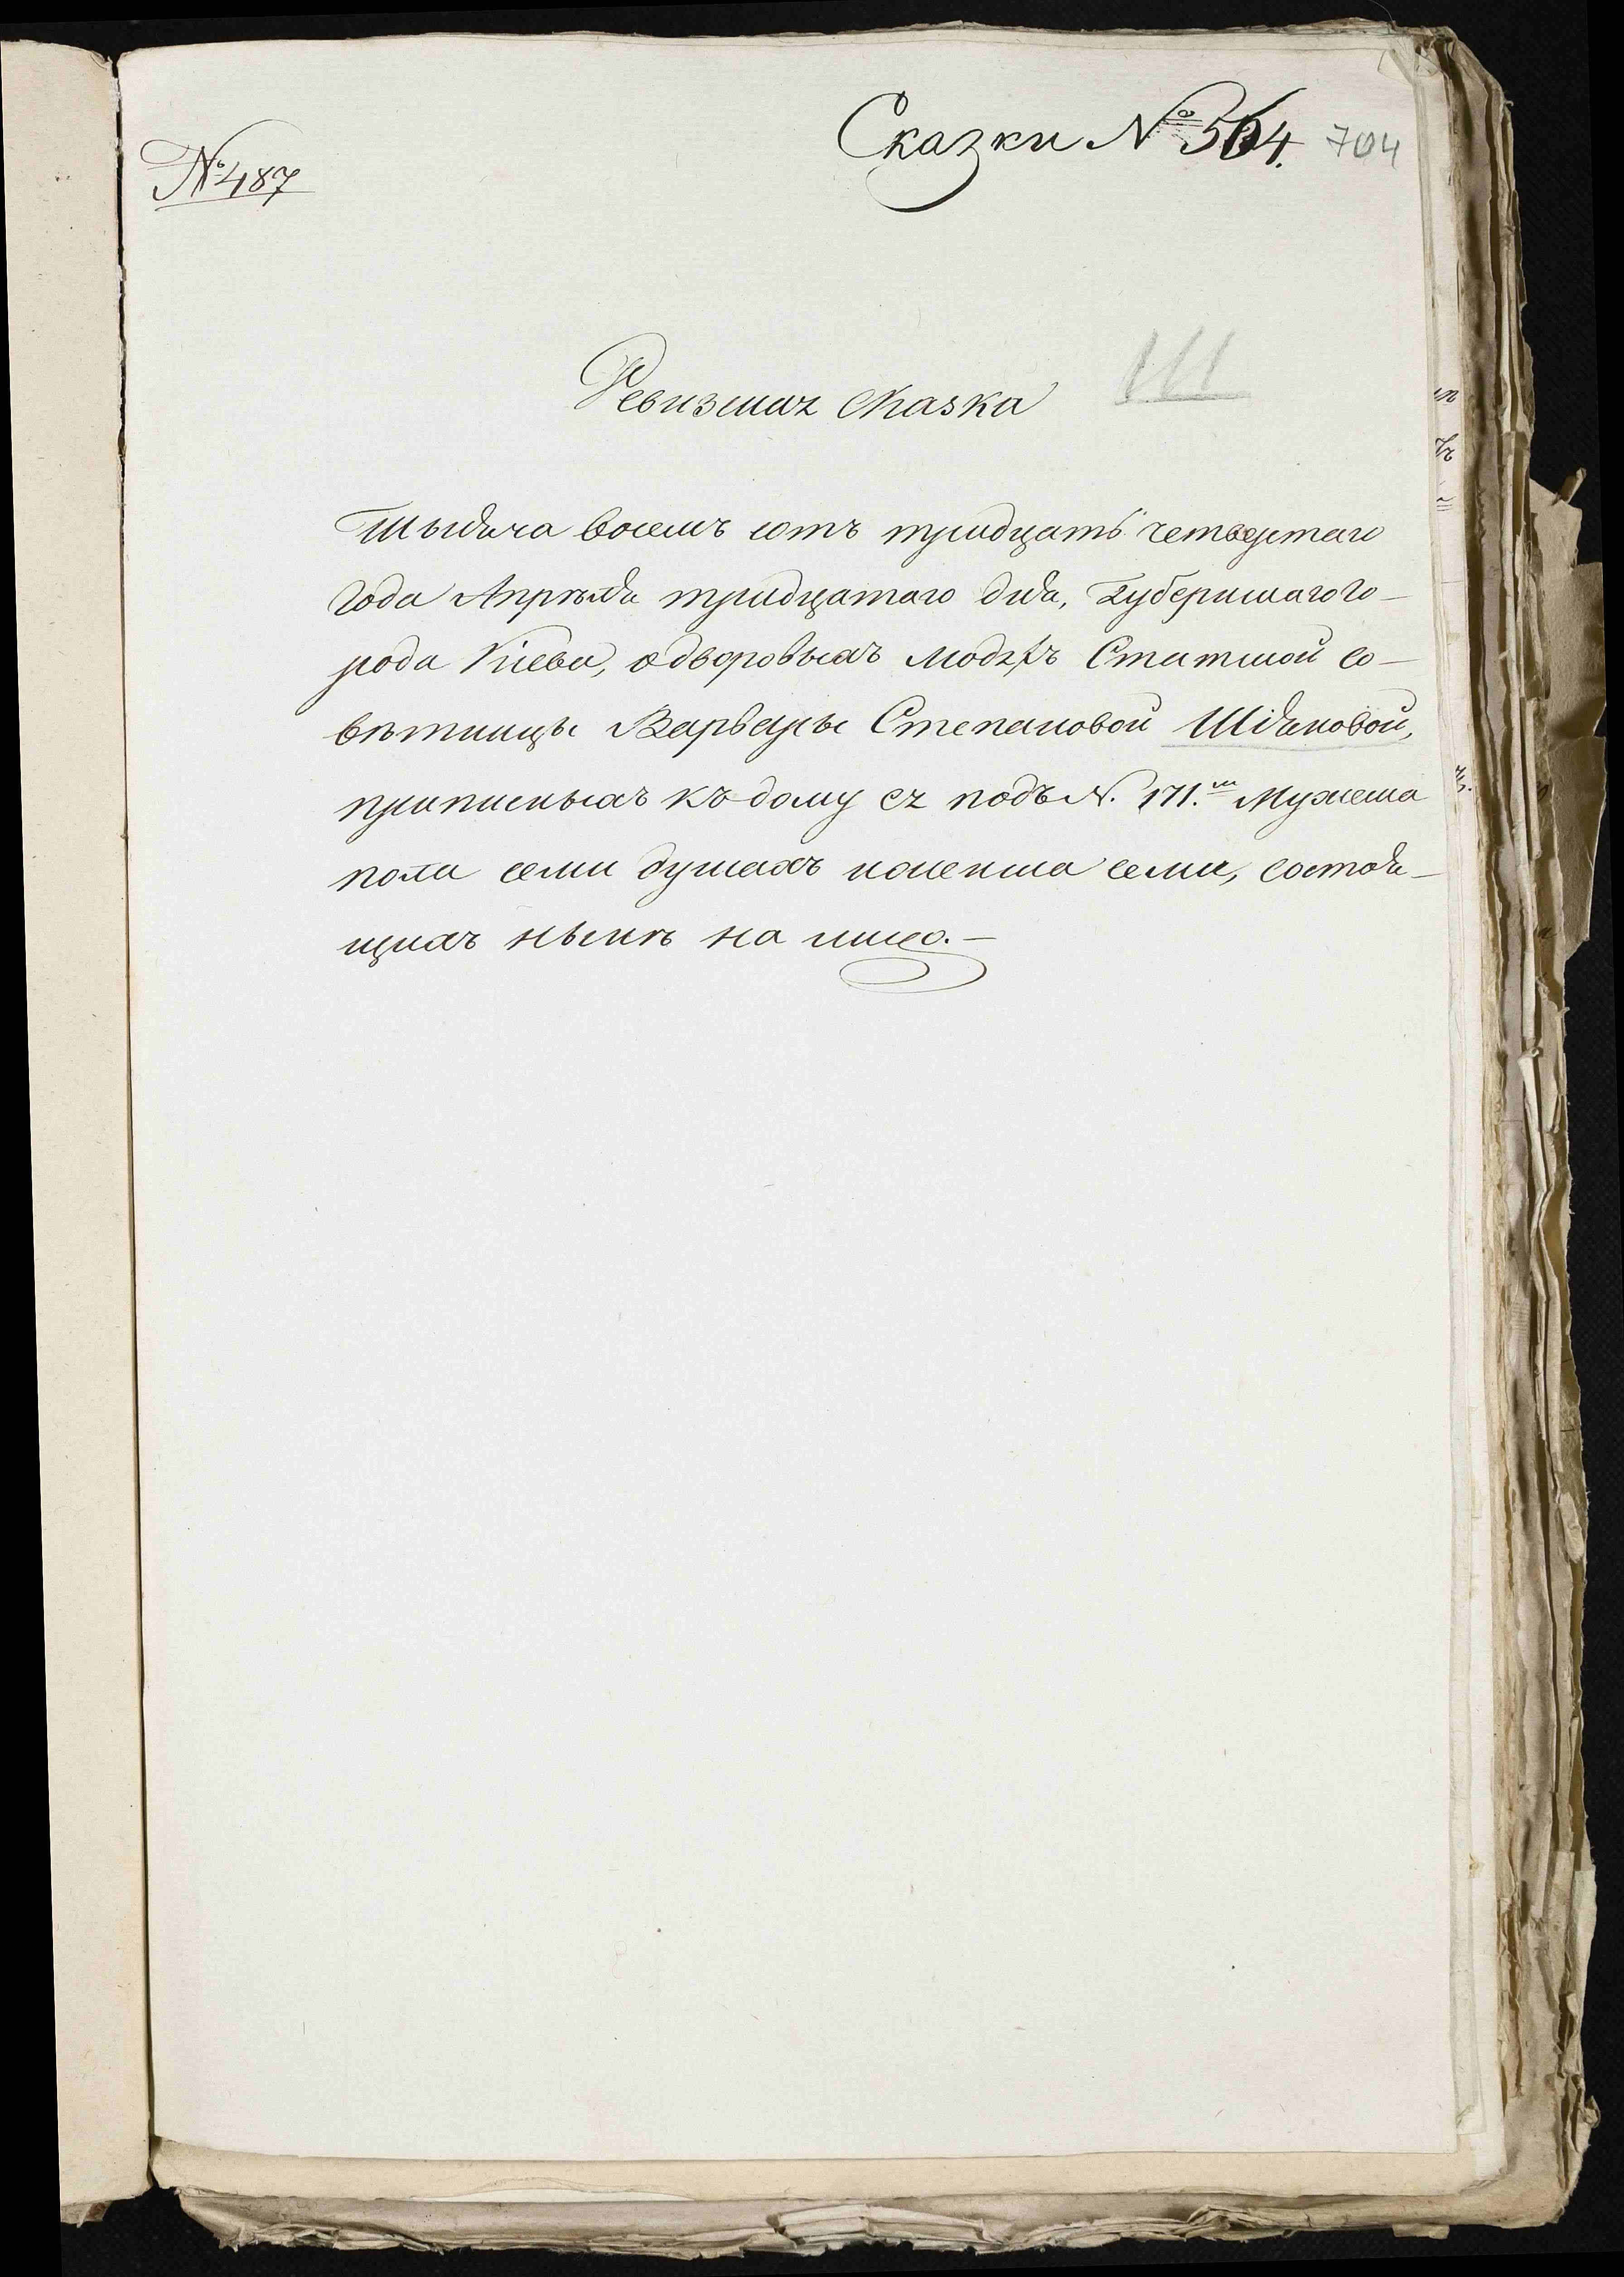 Сказки № 504. 704
№ 487
Ревизская сказка Ш
Тысяча восемь сотъ тридцать четвертаго
года Апрѣля тридцатаго дня, Губернскаго го-
рода Кіева, о дворовыхъ людяхъ Статской со-
вѣтницы Варвары Степановой
приписныхъ къ дому ея подъ N. 171.мъ Мужеска
пола семи душахъ и женска семи, состоя-
щихъ нынѣ на лицо.—